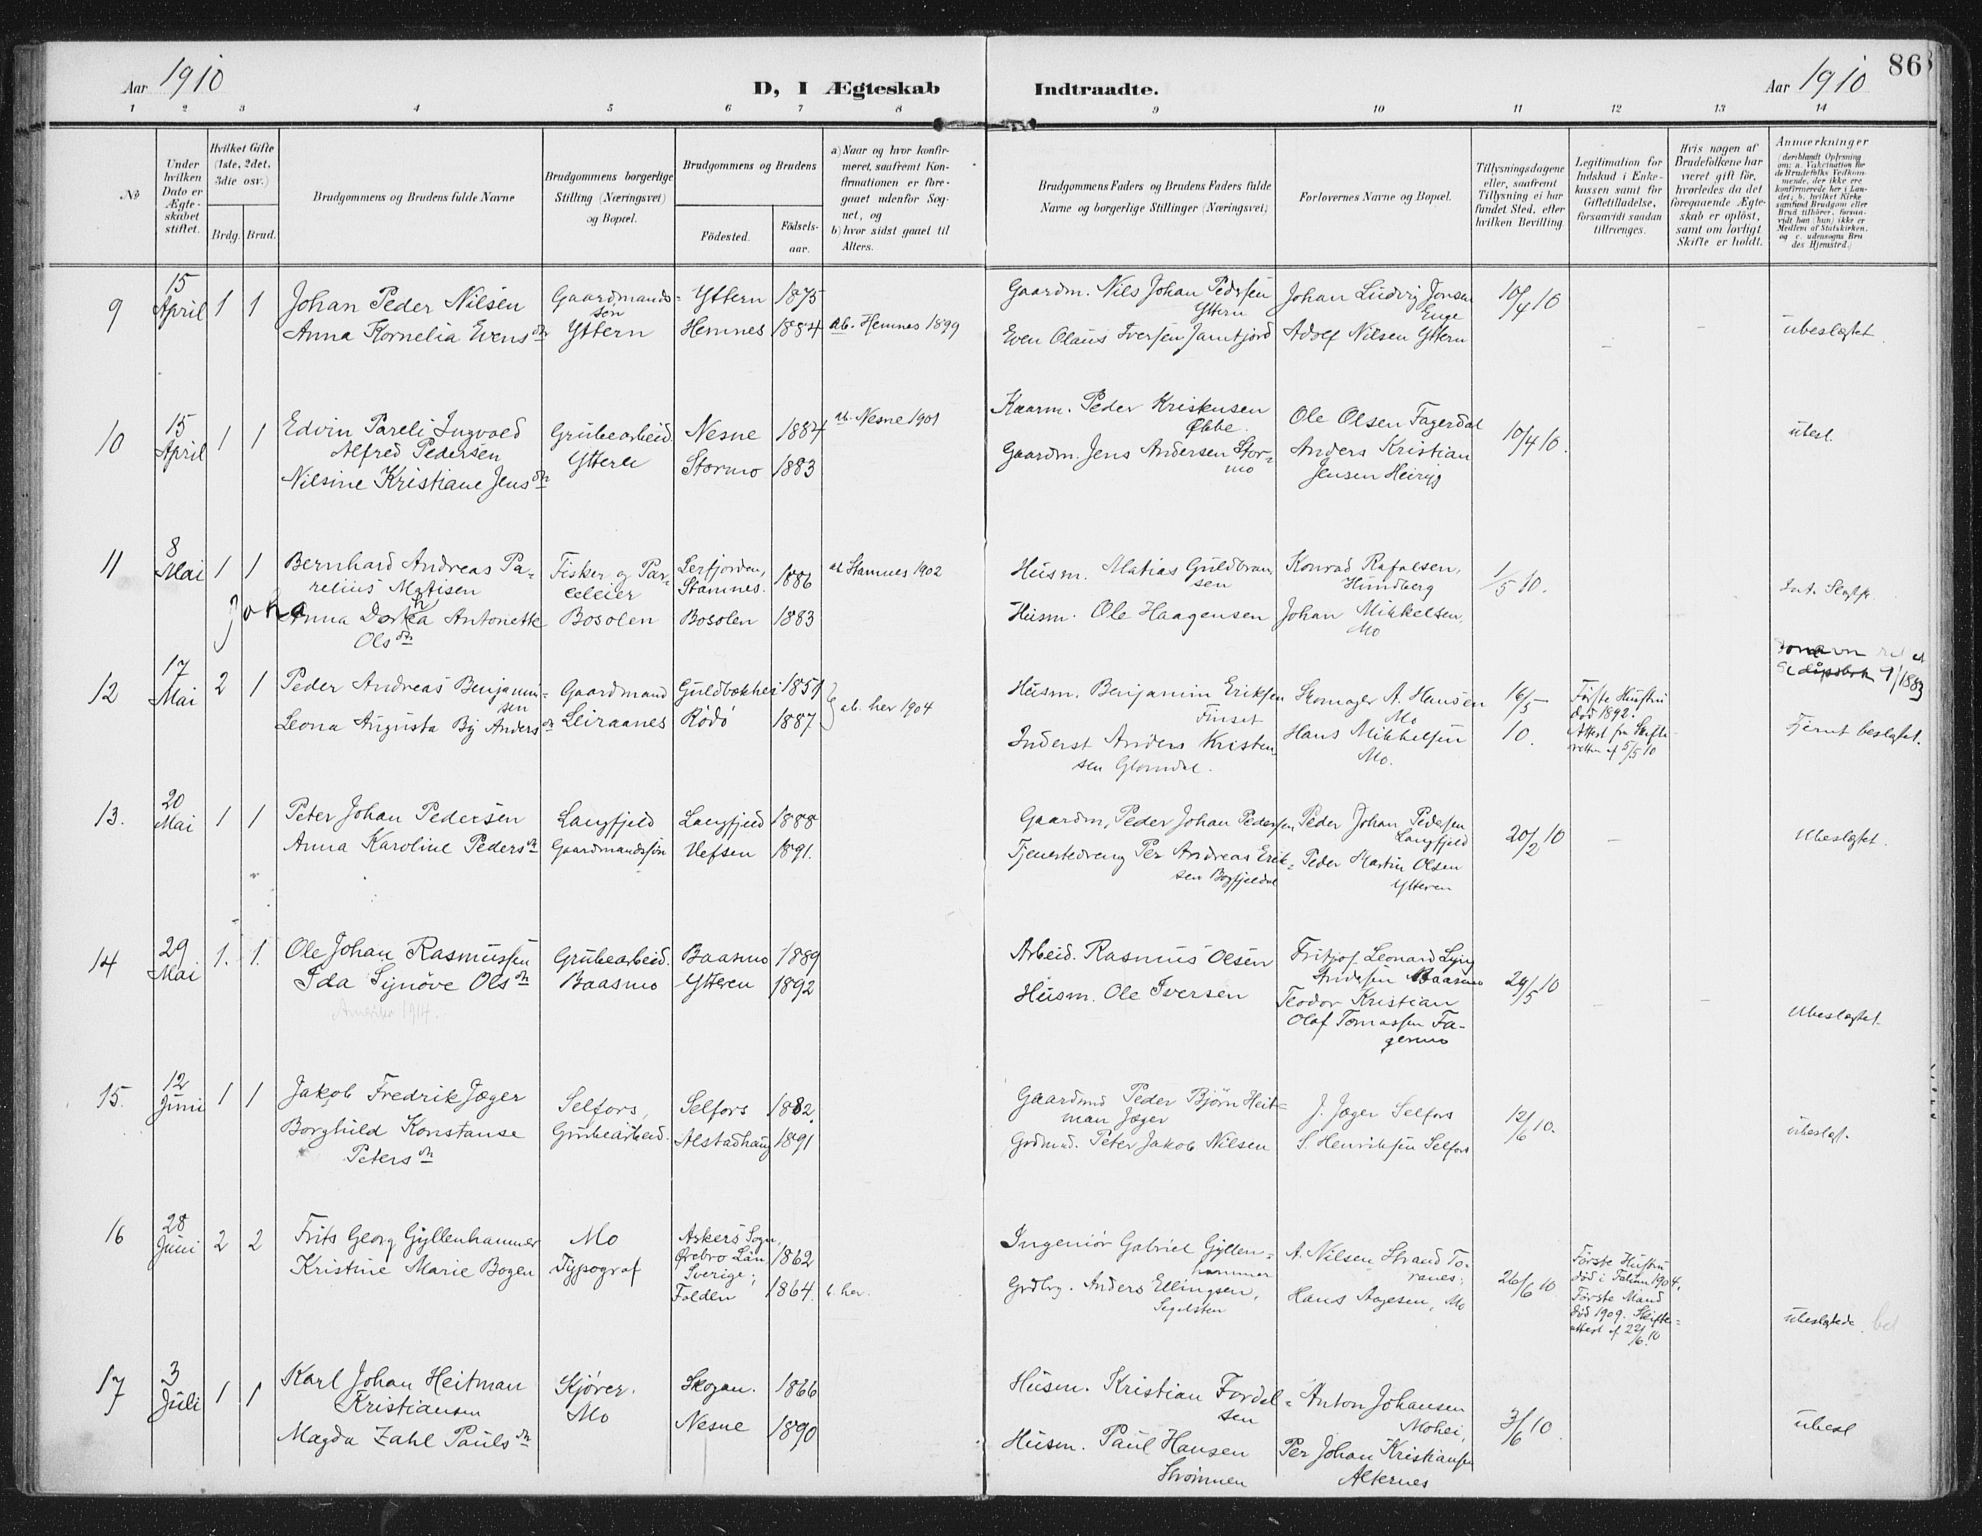 Aar 1910
D, I Ægteskab Indtraadte.
Aar 1910
86
1 2 3 4 5 6 7 8 9 10 11 12 13 14
No
Under hvilken Dato er Ægteskabet stiftet.
Hvilket Gifte (1ste, 2det, 3die osv.)
Brdg. Brud.
Brudgommens og Brudens fulde Navne
Brudgommens borgerlige Stilling (Næringsvei) og Bopæl.
Brudgommens og Brudens
Fødested.
Fødselsaar.
a) Naar og hvor konfirmeret, saafremt Konfirmationen er foregaaet udenfor Sognet, og
b) hvor sidst gaaet til Alters.
Brudgommens Faders og Brudens Faders fulde Navne og borgerlige Stillinger (Næringsvei)
Forlovernes Navne og Bopæl.
Tillysningsdagene eller, saafremt Tillysning ei har fundet Sted, efter hvilken Bevilling.
Legitimation for Indskud i Enkekassen samt for Giftetilladelse, forsaavidt saadan tiltrænges.
Hvis nogen af Brudefolkene har været gift før, hvorledes da det foregaaende Ægteskab er opløst, samt om lovligt Skifte er holdt.
Anmærkninger
(deriblandt Oplysning om: a. Vakcination for de Brudefolks Vedkommende, der ikke ere konfirmerede her i Landet; b. hvilket Kirkesamfund Brudgom eller Brud tilhører, forsaavidt han (hun) ikke er Medlem af Statskirken, og c. udensogns Brudes Hjemsted.)
9 15 April 1 1
Johan Peder Nilsen Gaardmandssøn Yttern 1875 Gaardm. Nils Johan Pedersen Yttern Johan Ludvig Jonsen Enge 10/4 10
Anna Kornelia Evensdn Yttern Hemnes 1884 ab. Hemnes 1899 Even Olaus Iversen Jamtjord Adolf Nilsen Yttern - ubeslægtet
10 15 April 1 1
Edvin Pareli Ingvald Alfred Pedersen Grubearbeid. Nesne 1884 ab. Nesne 1901 Kaarm. Peder Kristensen Økbe. Ole Olsen Fagerdal 10/4 10. ubesl.
Nilsine Kristiane Jensdn Ytterli Stormo 1883 Gaardm. Jens Andersen Stormo Anders Kristian Jensen
11 8 Mai 1 1
Bernhard Andreas Parelius Matisen Fisker og Parcelleier Serfjorden, Stamnes. 1886 a Stamnes 1902 Husm. Matias Guldbransen Konrad Rafalsen, Hundberg 1/5 10.
Joha
Anna Dorthea Antonette Olsdn Bosolen Bosolen 1883 Husm. Ole Haagensen Johan Mikkelsen, Mo
12 17 Mai 2 1
Peder Andreas Benjaminsen Gaardmand Guldbækhei 1851 ab. her 1904 Husm. Benjamin Eriksen Finset Skomager A. Hansen Mo 16/5 10. Første Hustru død 1892. Attest fra Skifteretten af 5/5 10
Leona Augusta By Andersdn Leiraanes Rödö 1887 Inderst Anders Kristensen Glomdal. Hans Mikkelsen Mo. Fjernt beslægtet.
13. 20 Mai 1 1
Peter Johan Pedersen Langfjeld Langfjeld 1888 Gaardm. Peder Johan Pedersen Peder Johan Pedersen Langfjeld 20/2 10 -
Anna Karoline Pedersdn Gaardmandssøn Vefsen 1891. Tjenestedreng Per Andreas Eriksen Peder Martin Olsen Ytteren Ubeslægtet.
14 29 Mai 1. 1.
Ole Johan Rasmussen Grubearbeid. Baasmo 1889 Arbeid. Rasmus Olsen Fritjof Leonard Lyng Andersen Baasmo 29/5 10
Ida Synöve Olsdn Baasmo Ytteren 1892 Husm. Ole Iversen Teodor Kristian Olaf Tomassen Fagermo Ubeslægtet.
Amerika 1914.
15. 12 Juni 1 1
Jakob Fredrik Jæger Selfors, Selfors 1882. Gaardmd Peder Bjørn Heitman Jæger J. Jæger Selfors 12/6 10.
Borghild Konstanse Petersdn Grubearbeid. Alstadhaug 1891 Grdmd. Peter Jakob Nilsen S. Henriksen Selfors ubeslægt.
16 28 Juni 2 2
Frits Georg Gyllenhammer Mo Askers Sogn, Ørebro Län Sverige; 1862 Ingeniör Gabriel Gyllenhammer A. Nilsen Strand Toranes; 26/6 10. Første Hustru død i Falun 1904. Første Mand død 1909. Skifteattest af 22/6 10
Kristine Marie Bogen Typograf Folden 1864. b. her. Grdbr. Anders Ellingsen, Segelsten Hans Aagesen, Mo ubeslægtede.
17 3 Juli 1 1
Karl Johan Heitman Kristiansen Kjører. Skogan. 1866 Husm. Kristian Fordelsen Anton Johansen Mohei, 3/6 10
Magda Zahl Paulsdn Mo Nesne 1890 Husm. Paul Hansen Strømmen Per Johan Kristiansen Alternes ubesl